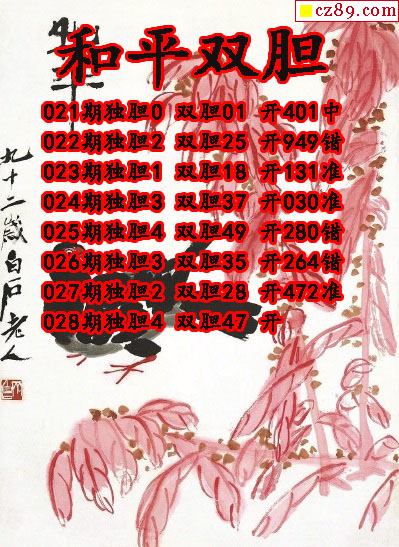 cz89.com
和平双胆
021期独胆0 双胆01 开401中
022期独胆2 双胆25 开949错
023期独胆1 双胆18 开131准
024期独胆3 双胆37 开030准
025期独胆4 双胆49 开280错
026期独胆3 双胆35 开264错
027期独胆2 双胆28 开472准
028期独胆4 双胆47 开
九十二岁白石老人